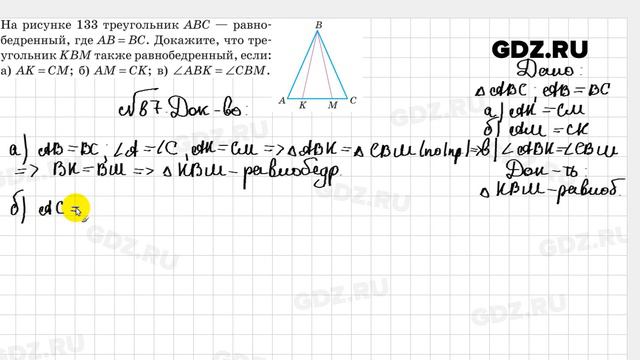 На рисунке 133 треугольник ABC — равно-
бедренный, где AB = BC. Докажите, что тре-
угольник KBM также равнобедренный, если:
а) AK = CM; б) AM = CK; в) ∠ABK = ∠CBM.
B
A K M C
GDZ.RU
Дано:
△ABC; AB = BC
а) AK = CM
б) AM = CK
в) ∠ABK = ∠CBM
Док-ть:
△KBM – равноб.
№187. Док-во:
а) AB = BC; ∠A = ∠C; AK = CM => △ABK = △CBM (по I пр) =>
=> BK = BM => △KBM – равнобедр.
б) AC =
GDZ.RU
GDZ.RU
GDZ.RU
GDZ.RU